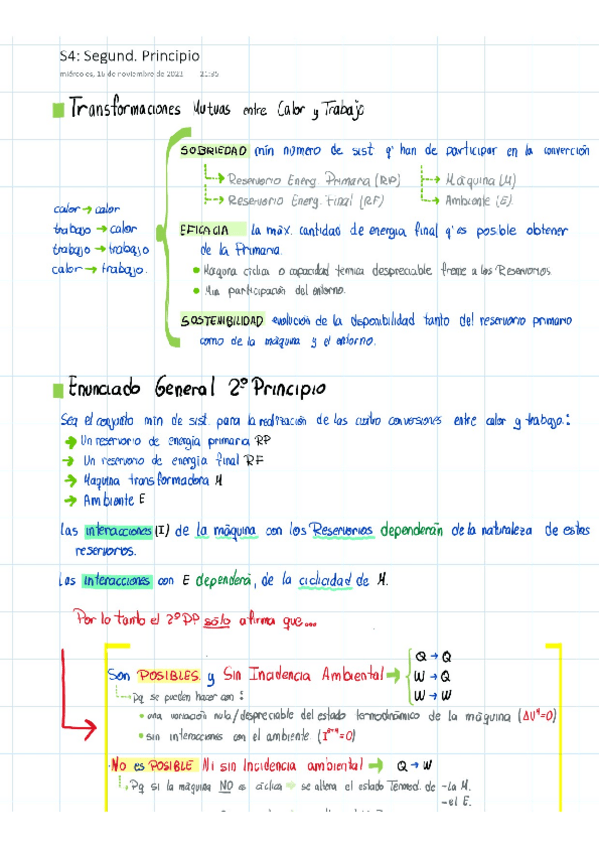 S4: Segund. Principio
miércoles, 16 de noviembre de 2021 21:35
Transformaciones Mutuas entre Calor y Trabajo
SOBRIEDAD mín número de sist q' han de participar en la converción
Reservorio Energ. Primaria (RP) → Máquina (M)
Reservorio Energ. Final (RF) → Ambiente (E)
calor → calor
trabajo → calor
trabajo → trabajo
calor → trabajo.
EFICACIA la máx. cantidad de energia final q' es posible obtener
de la Primaria.
• Maquina ciclica o capacidad termica despreciable frente a los Reservorios
• Min participación del entorno.
SOSTENIBILIDAD evolución de la disponibilidad tanto del reservorio primario
como de la máquina y el entorno.
Enunciado General 2º Principio
Sea el conjunto min de sist. para la realización de las cuatro conversiones entre calor y trabajo:
→ Un reservorio de energía primaria RP
→ Un reservorio de energia final RF
→ Maquina transformadora M
→ Ambiente E
Las interacciones (I) de la máquina con los Reservorios dependerán de la naturaleza de estos
reservorios.
Las interacciones con E dependerá, de la ciclicidad de M.
Por lo tanto el 2º PP sólo afirma que...
Son POSIBLES y Sin Incidencia Ambiental →
Q → Q
W → Q
W → W
Pq se pueden hacer con:
• una variación nula/despreciable del estado termodinámico de la máquina (ΔU=0)
• sin interacciones con el ambiente (I=0)
· No es POSIBLE Ni sin Incidencia ambiental → Q → W
Pq si la máquina NO es cíclica → se altera el estado Termod. de - La M.
- el E.